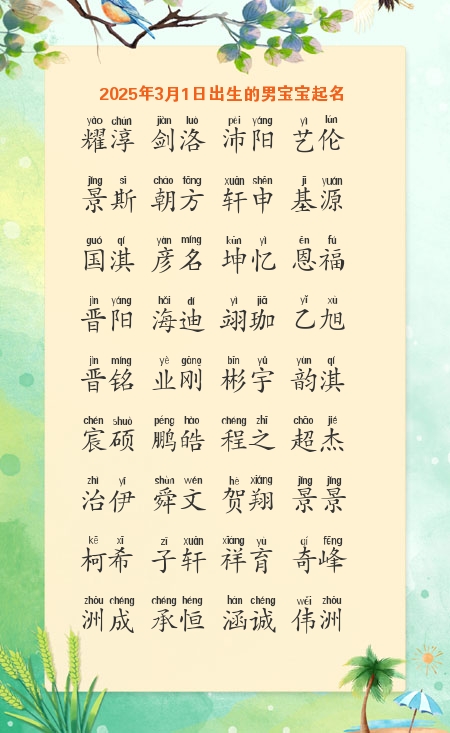 2025年3月1日出生的男宝宝起名
yào chún jiàn luò pèi yáng yì lún
耀淳 剑洛 沛阳 艺伦
jǐng sī cháo fāng xuān shēn jī yuán
景斯 朝方 轩申 基源
guó qí yàn míng kūn yì ēn fú
国淇 彦名 坤忆 恩福
jìn yáng hǎi dí yì jiā yǐ xù
晋阳 海迪 翊珈 乙旭
jìn míng yè gāng bīn yǔ yùn qí
晋铭 业刚 彬宇 韵淇
chén shuò péng hào chéng zhī chāo jié
宸硕 鹏皓 程之 超杰
zhì yī shùn wén hè xiáng jǐng jǐng
治伊 舜文 贺翔 景景
kē xī zǐ xuān xiáng yù qí fēng
柯希 子轩 祥育 奇峰
zhōu chéng chéng héng hán chéng wěi zhōu
洲成 承恒 涵诚 伟洲